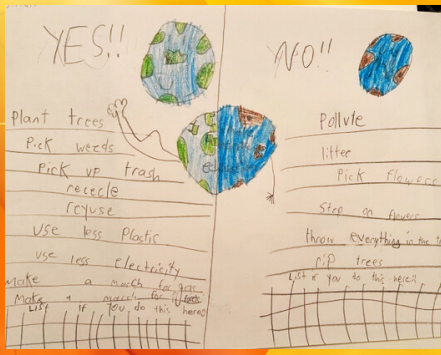 YES!!
Plant trees
Pick weeds
Pick up trash
rececle
reyuse
use less Plastic
use less electricity
make a march for gas
Make a march for
List if you do this here?
NO!!
Pollute
litter
Pick flowers
Step on flowers
throw everything in the
rip trees
List if you do this here?